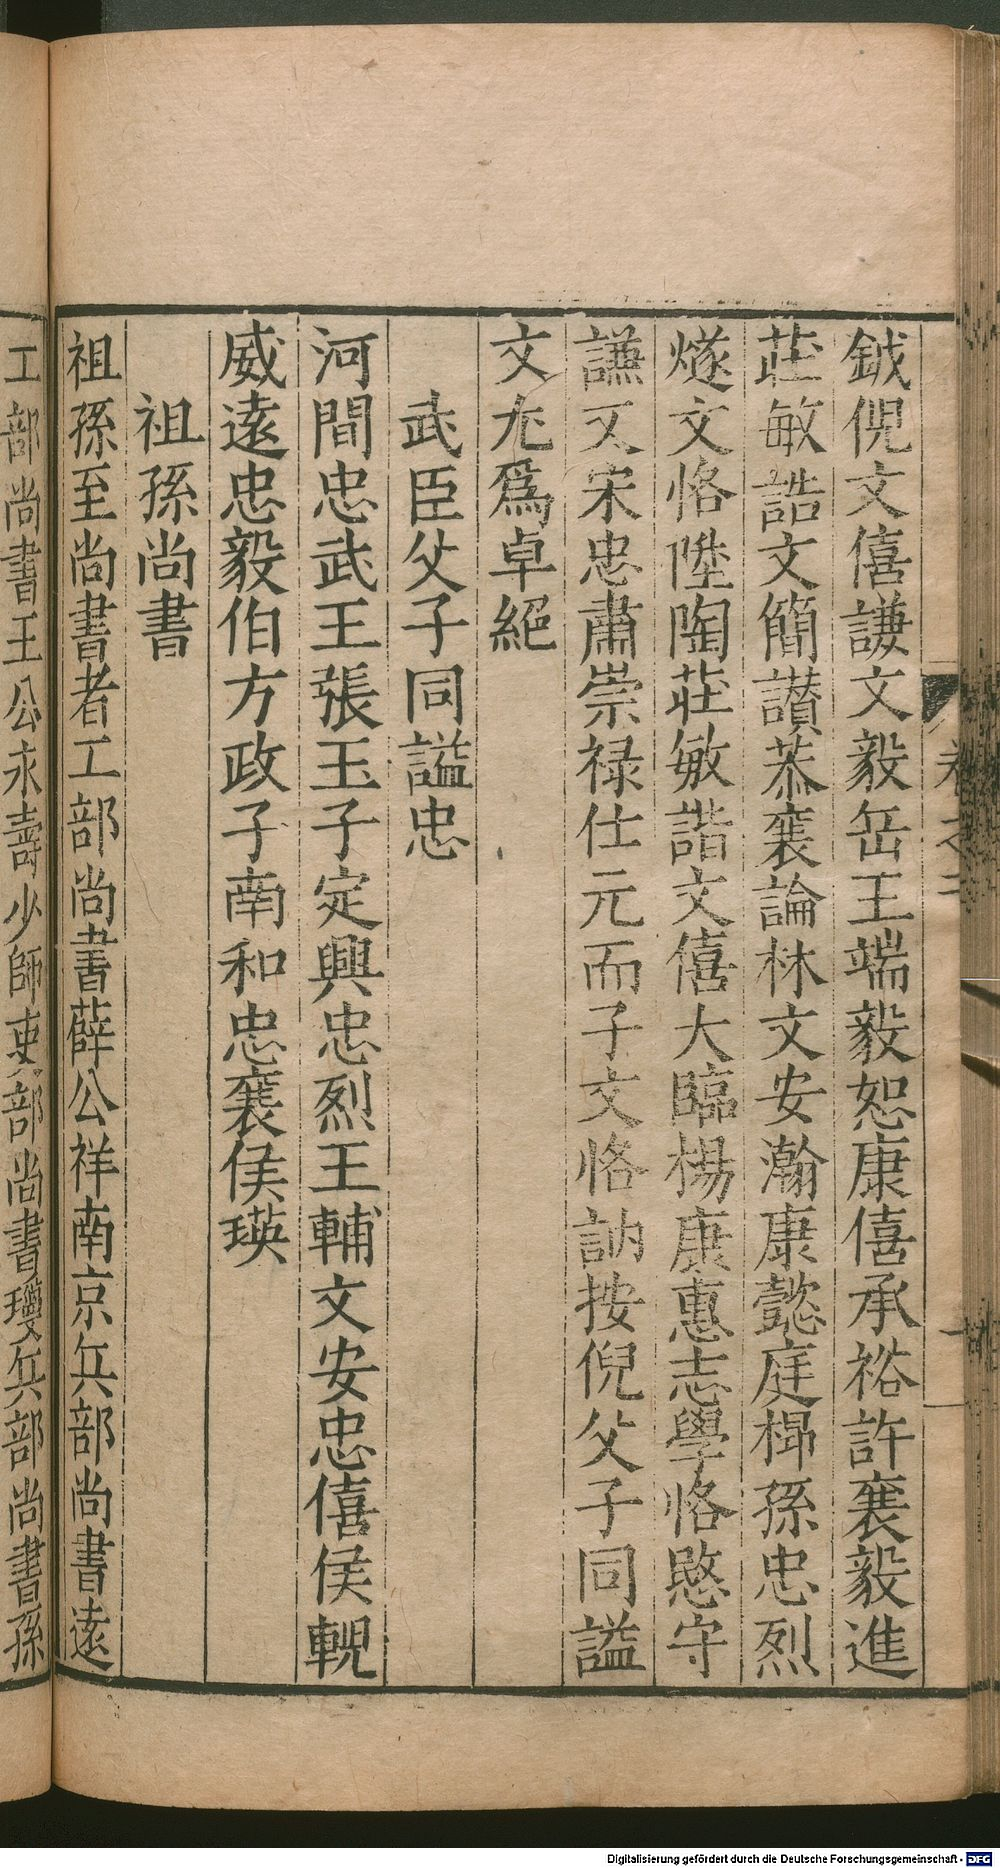 鉞倪文僖謙文毅岳王端毅恕康僖承裕許襄毅進
莊敏誥文簡讃恭襄論林文安瀚康懿庭㭿孫忠烈
燧文恪陞陶莊敏諧文僖大臨楊康惠志學恪愍守
謙又宋忠肅崇祿仕元而子文恪訥按倪父子同謚
文尤爲卓絕
武臣父子同謚忠
河間忠武王張玉子定興忠烈王輔文安忠僖侯輗
威遠忠毅伯方政子南和忠襄侯瑛
祖孫尚書
祖孫至尚書者工部尚書薛公祥南京兵部尚書遠
工部尚書王公永壽少師吏部尚書瓊兵部尚書孫
卷之二
Digitalisierung gefördert durch die Deutsche Forschungsgemeinschaft - DFG